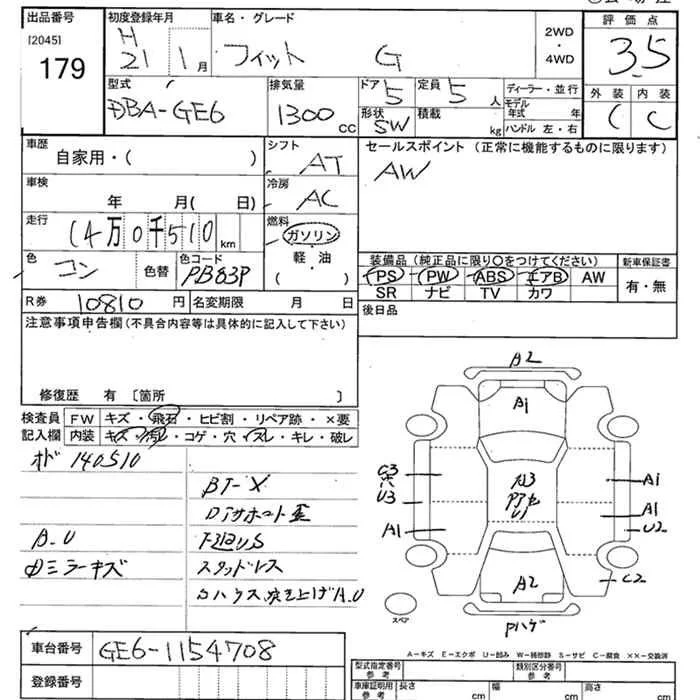 出品番号
[2045]
179
初度登録年月
H
21 1月
車名・グレード
フィット G
2WD
・
4WD
評価点
3.5
外装 内装
C C
型式
DBA-GE6
排気量
1300 cc
ドア 5
定員 5 人
形状 SW
積載 kg
ディーラー・並行
モデル年式 年
ハンドル 左・右
車歴
自家用・( )
シフト
AT
セールスポイント (正常に機能するものに限ります)
AW
車検
年 月( 日)
冷房
AC
走行
14万0千510 km
燃料
ガソリン
・
軽・油
・
( )
色
コン 色替
色コード
PB83P
装備品 (純正品に限り○をつけてください)
PS PW ABS エアB AW
SR ナビ TV カワ
新車保証書
有・無
R券 10810 円
名変期限 月 日
後日品
注意事項申告欄(不具合内容等は具体的に記入して下さい)
修復歴 有 〔箇所 〕
検査員
記入欄
FW キズ・飛石・ヒビ割・リペア跡・×要
内装 キズ・汚レ・コゲ・穴・スレ・キレ・破レ
オド 140510
BT-X
A.U
下廻りS
ミラーキズ
スタッドレス
A.U
A2
A1
C3
U3
A1
A1
A1
U2
U1
A2
C2
Pハゲ
スペア
A-キズ E-エクボ U-凹み W-補修跡 S-サビ C-腐食 ××-交換済
車台番号
GE6-1154708
登録番号
型式指定番号
参考
類別区分番号
参考
車庫証明用
参考
長さ cm
幅 cm
高さ cm